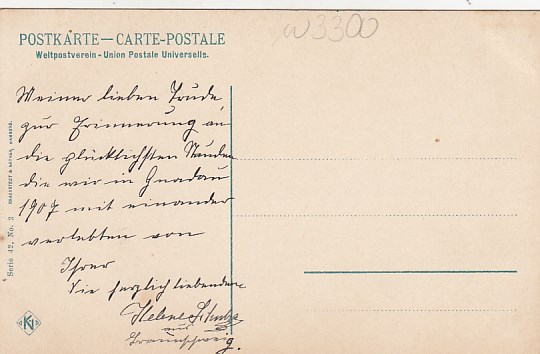 W 3300
POSTKARTE — CARTE-POSTALE
Weltpostverein - Union Postale Universelle.
Meiner lieben Trude,
zur Erinnerung an
die glücklichsten Stunden
die wir in Gnadau
1907 mit einander
verlebten von
Ihrer
Sie herzlich liebenden
Helene Schulze
aus
Braunschweig.
Serie 42, No. 3